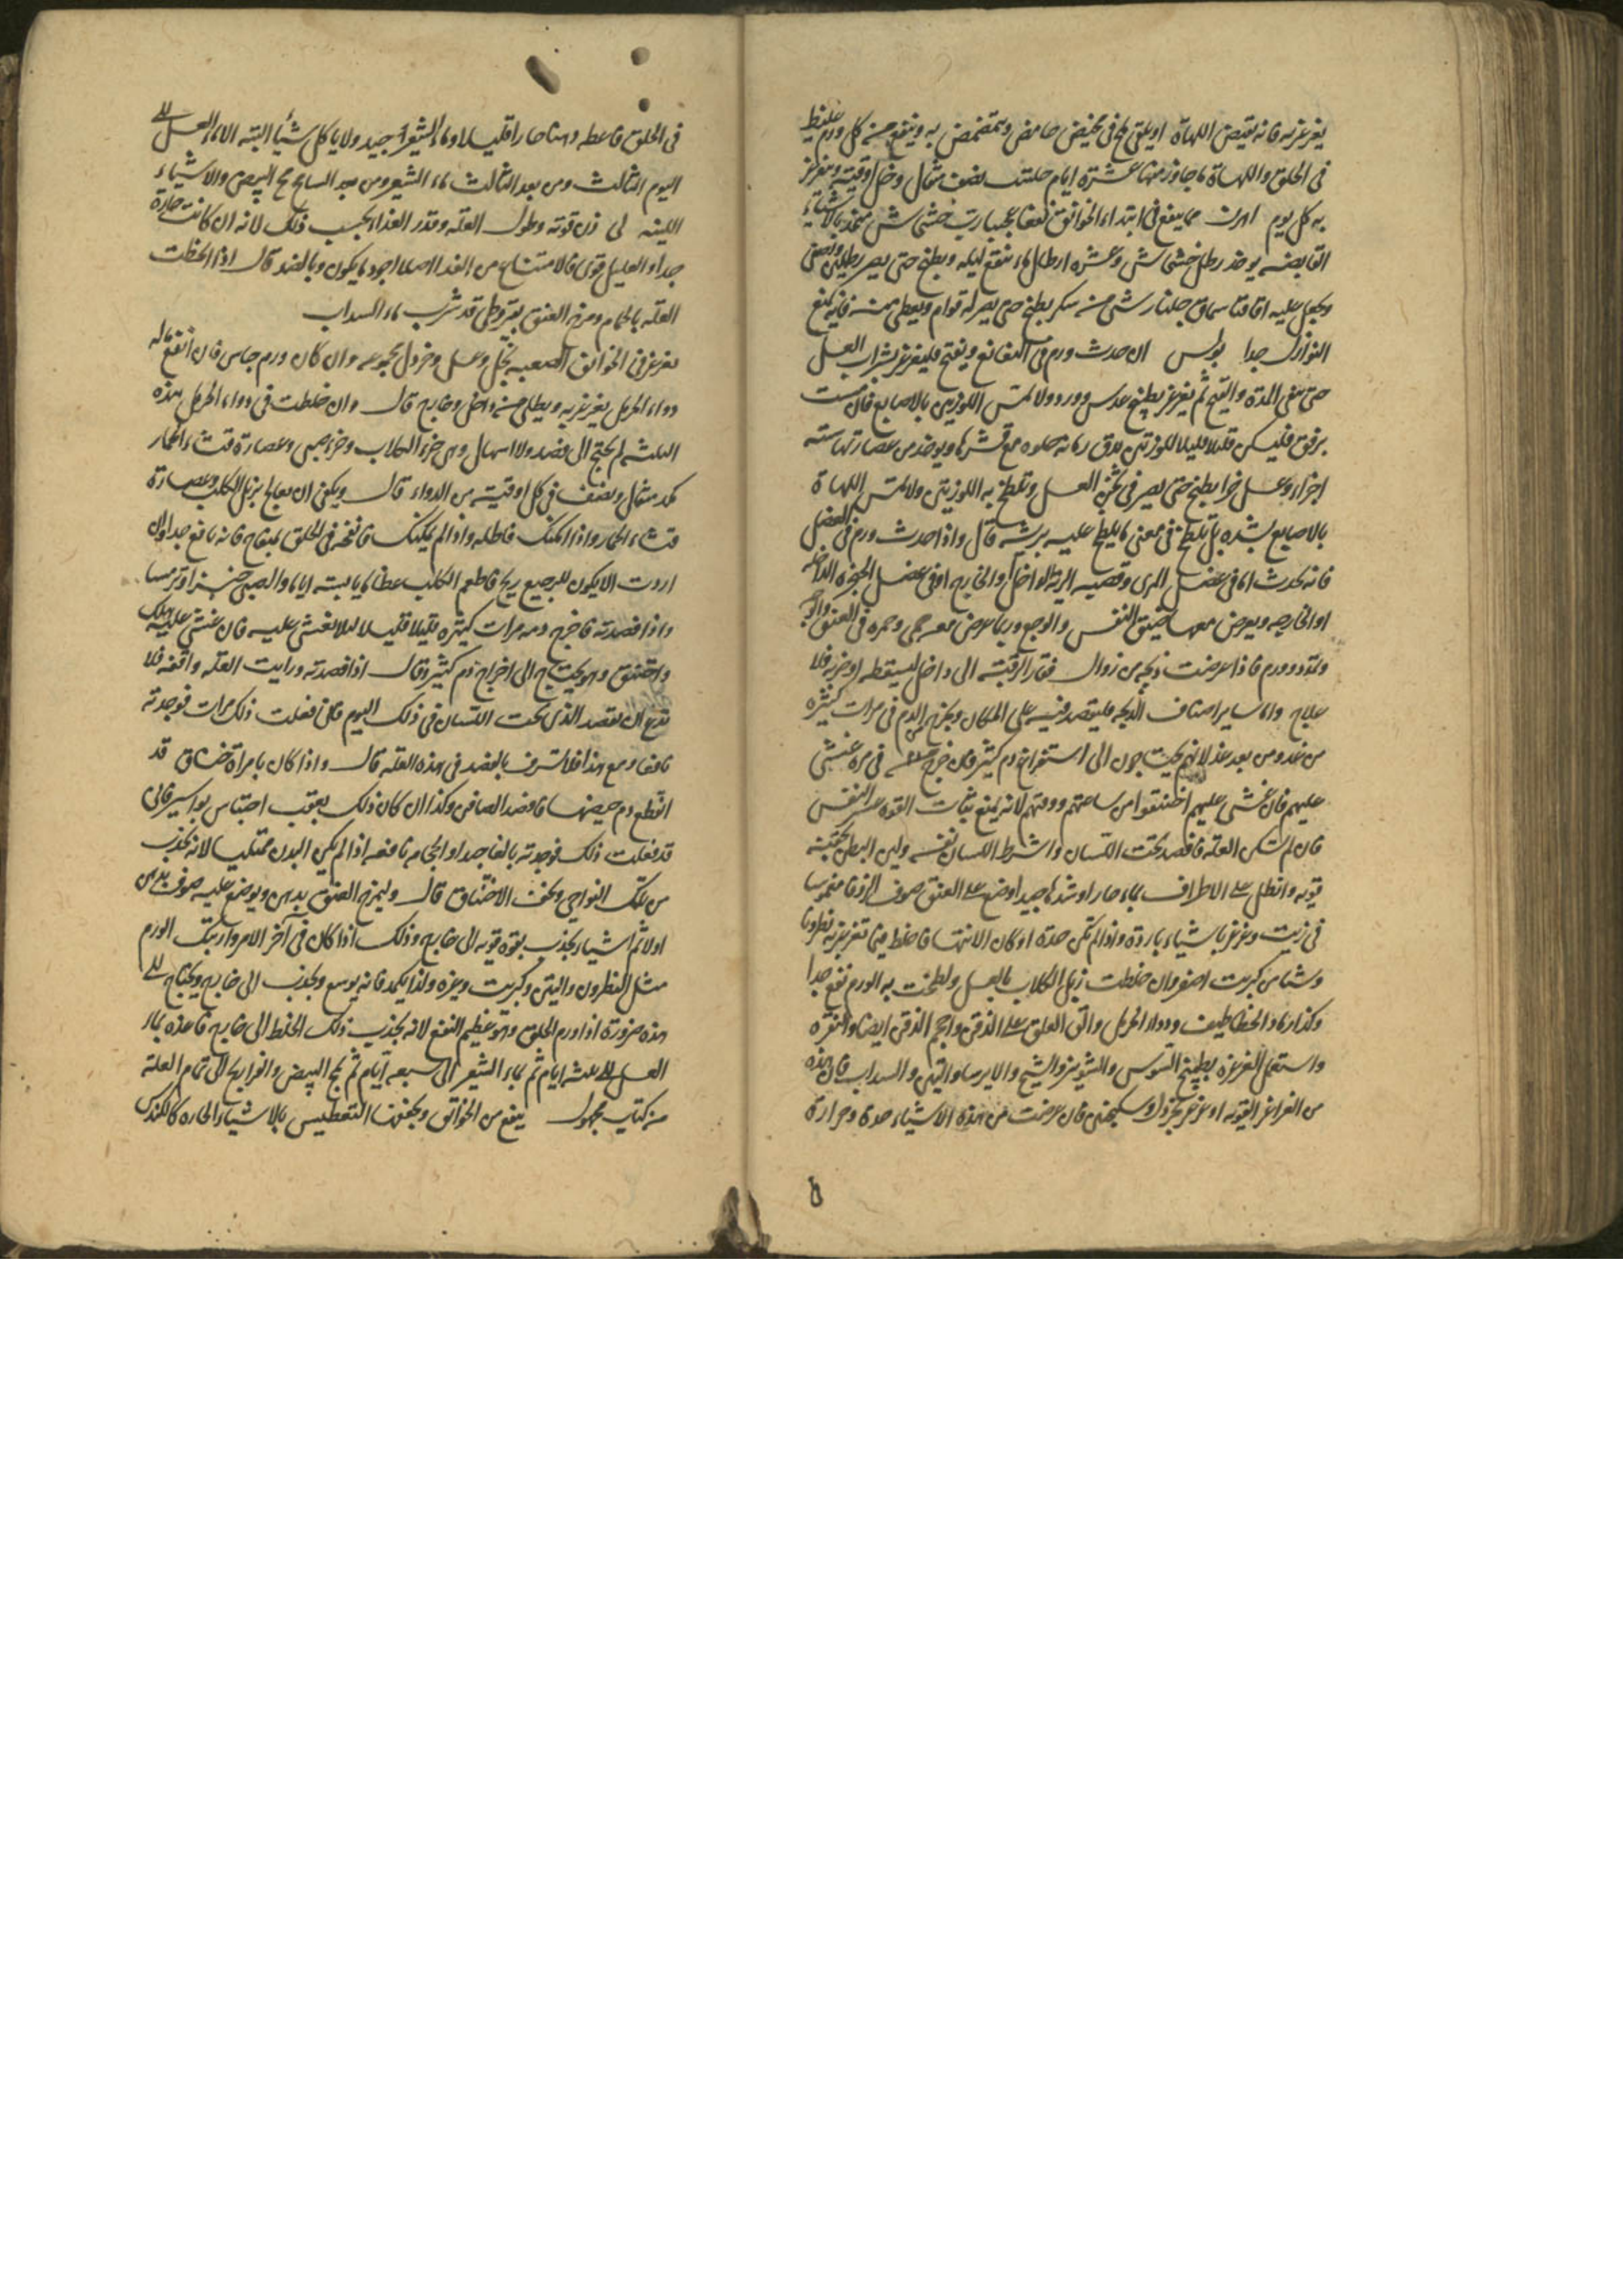 يغرغر به فانه يقبض اللهاة او يلقى في مخيض حامض ويتمضمض به وينفع من كل ورم غليظ
في الحلق واللهاة ما جاوز منها عشرة ايام حلتيت نصف مثقال وخل اوقية ويغرغر
به كل يوم اهرن مما ينفع في ابتداء الخوانيق نفعا عجيبا رب خشخاش متخذ بالاشياء
القابضه يوخذ رطل خشخاش وعشره ارطال ماء ينقع ليله ويطبخ حتى يصير رطلين ويصفى
ويجعل عليه اقاقيا سماق جلنار شي من سكر يطبخ حتى يصير له قوام ويعطى منه فانه يمنع
النوازل جدا بولس ان حدث ورم في النغانغ ويفتح فليغرغر بشراب العسل
حتى تنقى المدة والقيح ثم يغرغر بطبيخ عدس وورد ولا تمس اللوزتين بالاصابع فان مست
برفق فليكن قليلا قليلا للوزتين يدق رمانه حلوه مع قشرها ويوخذ من عصارتها سته
اجزاء وعسل جزا يطبخ حتى يصير في ثخن العسل وتلطخ به اللوزتين ولا تمس اللهاة
بالاصابع بشده بل تلطخ في معنى ما يلطخ عليه بريشه قال واذا حدث ورم في العضل
فانه يحدث اما في عضل المرى وقصبه الريه الداخل او الخارج او في عضل الحنجره الداخله
او الخارجه ويعرض معها ضيق النفس والوجع وربما عرض معه حمى وحمره في العنق والوجه
وتمدد وورم فاذا عرضت ذبحه من زوال فقار الرقبة الى داخل لسقطه او ضربه فلا
علاج واما ساير اصناف الذبحه فليفصد فيه على المكان ويخرج الدم في مرات كثيره
من غد ومن بعد غد لانهم يحتاجون الى استفراغ دم كثير فان خرج في مره غشي
عليهم فان غشي عليهم اختنقوا من ساعتهم ووقتهم لانه يمنع ثبات القوه عسر النفس
فان لم تسكن العله فافصد تحت اللسان واشرط اللسان نفسه ولين البطن بحقنه
قويه وانطل على الاطراف بماء حار او شدها جيدا وضع على العنق صوف الزوفا مغموسا
في زيت وغرغر باشياء باردة واذا لم تكن حدة او كان الانتها فاخلط فيما تغرغر به نطرونا
وشيا من كبريت اصفر وان خلطت زبل الكلاب بالعسل ولطخت به الورم نفع جدا
وكذا رماد الخطاطيف ودواء الحرمل والق العلق على الذقن واحجم الذقن ايضا والنقره
واستعمل الغرغرة بطبيخ السوس والشونيز والشيح والايرسا والتين والسداب فان هذه
من الغراغر القويه او غرغر بخردل وسكنجبين فان عرضت من هذه الاشياء حدة وحرارة
في الحلق فاعطه دهنا حارا قليلا وماء الشعير جيد ولا ياكل شيأ البته الا ماء العسل الى
اليوم الثالث ومن بعد الثالث ماء الشعير ومن بعد السابع مح البيض والاشياء
اللينه لي زن قوته وطول العله وقدر الغذا بحسب ذلك لانه ان كانت حارة
جدا والعليل قوى فالامتناع من الغذا اصلا اجود ما يكون وبالضد قال اذا انحطت
العله بالحمام ومرخ العنق بقيروطي قد شرب ماء السداب
يغرغر في الخوانيق الصعبه بخل وعسل وخردل مجموعه وان كان ورم جاس فان انفع ماله
دواء الحرمل يغرغر به ويطلى منه داخل وخارج قال وان خلطت في دواء الحرمل هذه
الثلثه لم يحتج الى فصد ولا اسهال وهي خرء الكلاب وخرء صبي وعصارة قثاء الحمار
كمد مثقال ونصف في كل اوقيه من الدواء قال ويكفي ان يعالج بزبل الكلب وعصارة
قثاء الحمار واذا امكنك فاطله واذا لم يمكنك فانفخه في الحلق بمنفاخ فانه نافع جدا وان
اردت الا يكون للرجيع ريح فاطعم الكلب عظاما يابسه اياما والصبي خبزا وترمسا
واذا فصدته فاخرج دمه مرات كثيره قليلا قليلا لئلا يغشى عليه فان غشي عليه هلك
واختنق وهو يحتاج الى اخراج دم كثير وقال اذا فصدته ورايت العله واقفه فلا
تدع ان تفصد الذى تحت اللسان في ذلك اليوم فانى فعلت ذلك مرات فوجدته
نافعا ومع هذا فلا تسرف بالفصد في هذه العله قال واذا كان بامراة خناق قد
انقطع دم حيضها فافصد الصافن وكذا ان كان ذلك بعقب احتباس بواسير فانى
قد فعلت ذلك فوجدته بالغا جدا والحجامه نافعه اذا لم يكن البدن ممتليا لانه يجذب
من تلك النواحي ويخف الاختناق قال وليمرخ العنق بدهن ويوضع عليه صوف بدهن
اولا ثم اشيا يجذب بقوه قويه الى خارج وذلك اذا كان في آخر الامر واربك الورم
مثل النطرون والتين وكبريت وغيره ولذا يكمد فانه يوسع ويجذب الى خارج ويحتاج الى
هذه ضرورة اذا ورم الحلق وهو عظيم النفع لانه يجذب ذلك الخلط الى خارج فاغذه بماء
العسل الى ثلثه ايام ثم بماء الشعير الى سبعه ايام ثم مح البيض والفراريج الى تمام العلة
من كتاب مجهول ينفع من الخوانق ويخففها التعطيس بالاشياء الحاره كالكندس